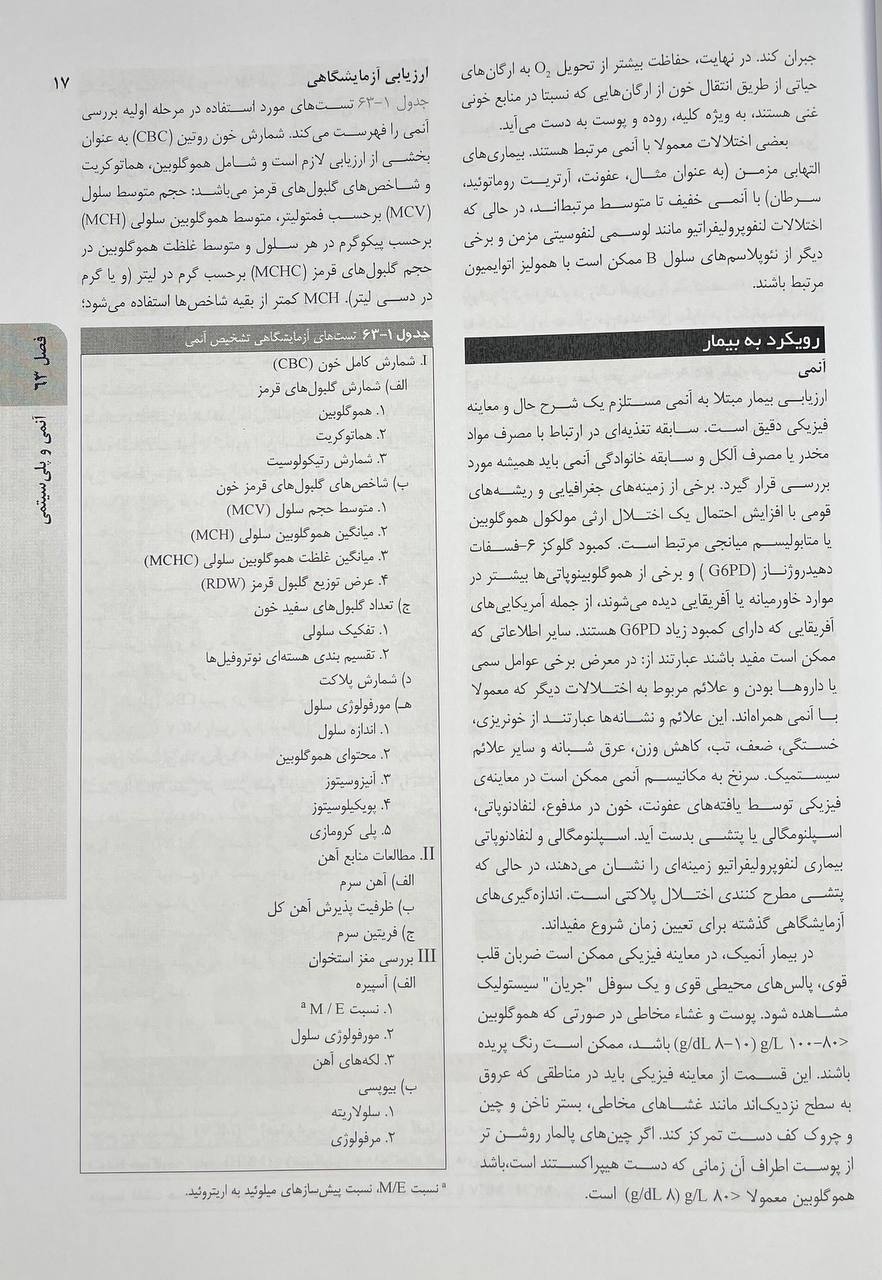 جبران کند. در نهایت، حفاظت بیشتر از تحویل O₂ به ارگان‌های
حیاتی از طریق انتقال خون از ارگان‌هایی که نسبتا در منابع خونی
غنی هستند، به ویژه کلیه، روده و پوست به دست می‌آید.
بعضی اختلالات معمولا با آنمی مرتبط هستند. بیماری‌های
التهابی مزمن (به عنوان مثال، عفونت، آرتریت روماتوئید،
سرطان) با آنمی خفیف تا متوسط مرتبط‌اند، در حالی که
اختلالات لنفوپرولیفراتیو مانند لوسمی لنفوسیتی مزمن و برخی
دیگر از نئوپلاسم‌های سلول B ممکن است با همولیز اتوایمیون
مرتبط باشند.
رویکرد به بیمار
آنمی
ارزیابی بیمار مبتلا به آنمی مستلزم یک شرح حال و معاینه
فیزیکی دقیق است. سابقه تغذیه‌ای در ارتباط با مصرف مواد
مخدر یا مصرف الکل و سابقه خانوادگی آنمی باید همیشه مورد
بررسی قرار گیرد. برخی از زمینه‌های جغرافیایی و ریشه‌های
قومی با افزایش احتمال یک اختلال ارثی مولکول هموگلوبین
یا متابولیسم میانجی مرتبط است. کمبود گلوکز ۶-فسفات
دهیدروژناز (G6PD ) و برخی از هموگلوبینوپاتی‌ها بیشتر در
موارد خاورمیانه یا آفریقایی دیده می‌شوند، از جمله آمریکایی‌های
آفریقایی که دارای کمبود زیاد G6PD هستند. سایر اطلاعاتی که
ممکن است مفید باشند عبارتند از: در معرض برخی عوامل سمی
یا داروها بودن و علائم مربوط به اختلالات دیگر که معمولا
با آنمی همراه‌اند. این علائم و نشانه‌ها عبارتند از خونریزی،
خستگی، ضعف، تب، کاهش وزن، عرق شبانه و سایر علائم
سیستمیک. سرنخ به مکانیسم آنمی ممکن است در معاینه‌ی
فیزیکی توسط یافته‌های عفونت، خون در مدفوع، لنفادنوپاتی،
اسپلنومگالی یا پتشی بدست آید. اسپلنومگالی و لنفادنوپاتی
بیماری لنفوپرولیفراتیو زمینه‌ای را نشان می‌دهند، در حالی که
پتشی مطرح کنندی اختلال پلاکتی است. اندازه‌گیری‌های
آزمایشگاهی گذشته برای تعیین زمان شروع مفیداند.
در بیمار آنمیک، در معاینه فیزیکی ممکن است ضربان قلب
قوی، پالس‌های محیطی قوی و یک سوفل "جریان" سیستولیک
مشاهده شود. پوست و غشاء مخاطی در صورتی که هموگلوبین
<۸۰-۱۰۰ g/L (۸-۱۰ g/dL) باشد، ممکن است رنگ پریده
باشند. این قسمت از معاینه فیزیکی باید در مناطقی که عروق
به سطح نزدیک‌اند مانند غشاهای مخاطی، بستر ناخن و چین
و چروک کف دست تمرکز کند. اگر چین‌های پالمار روشن تر
از پوست اطراف آن زمانی که دست هیپراکستند است،باشد
هموگلوبین معمولا <۸۰ g/L (۸ g/dL) است.
۱۷
ارزیابی آزمایشگاهی
جدول ۱-۶۳ تست‌های مورد استفاده در مرحله اولیه بررسی
آنمی را فهرست می‌کند. شمارش خون روتین (CBC) به عنوان
بخشی از ارزیابی لازم است و شامل هموگلوبین، هماتوکریت
و شاخص‌های گلبول‌های قرمز می‌باشد: حجم متوسط سلول
(MCV) برحسب فمتولیتر، متوسط هموگلوبین سلولی (MCH)
برحسب پیکوگرم در هر سلول و متوسط غلظت هموگلوبین در
حجم گلبول‌های قرمز (MCHC) برحسب گرم در لیتر (و یا گرم
در دسی لیتر). MCH کمتر از بقیه شاخص‌ها استفاده می‌شود؛
جدول ۱-۶۳ تست‌های آزمایشگاهی تشخیص آنمی
I. شمارش کامل خون (CBC)
الف) شمارش گلبول‌های قرمز
۱. هموگلوبین
۲. هماتوکریت
۳. شمارش رتیکولوسیت
ب) شاخص‌های گلبول‌های قرمز خون
۱. متوسط حجم سلول (MCV)
۲. میانگین هموگلوبین سلولی (MCH)
۳. میانگین غلظت هموگلوبین سلولی (MCHC)
۴. عرض توزیع گلبول قرمز (RDW)
ج) تعداد گلبول‌های سفید خون
۱. تفکیک سلولی
۲. تقسیم بندی هسته‌ای نوتروفیل‌ها
د) شمارش پلاکت
هـ) مورفولوژی سلول
۱. اندازه سلول
۲. محتوای هموگلوبین
۳. آنیزوسیتوز
۴. پویکیلوسیتوز
۵. پلی کرومازی
II. مطالعات منابع آهن
الف) آهن سرم
ب) ظرفیت پذیرش آهن کل
ج) فریتین سرم
III بررسی مغز استخوان
الف) آسپیره
۱. نسبت M / E ª
۲. مورفولوژی سلول
۳. لکه‌های آهن
ب) بیوپسی
۱. سلولاریته
۲. مرفولوژی
ª نسبت M/E، نسبت پیش‌سازهای میلوئید به اریتروئید.
فصل ۶۳ آنمی و پلی‌سیتمی